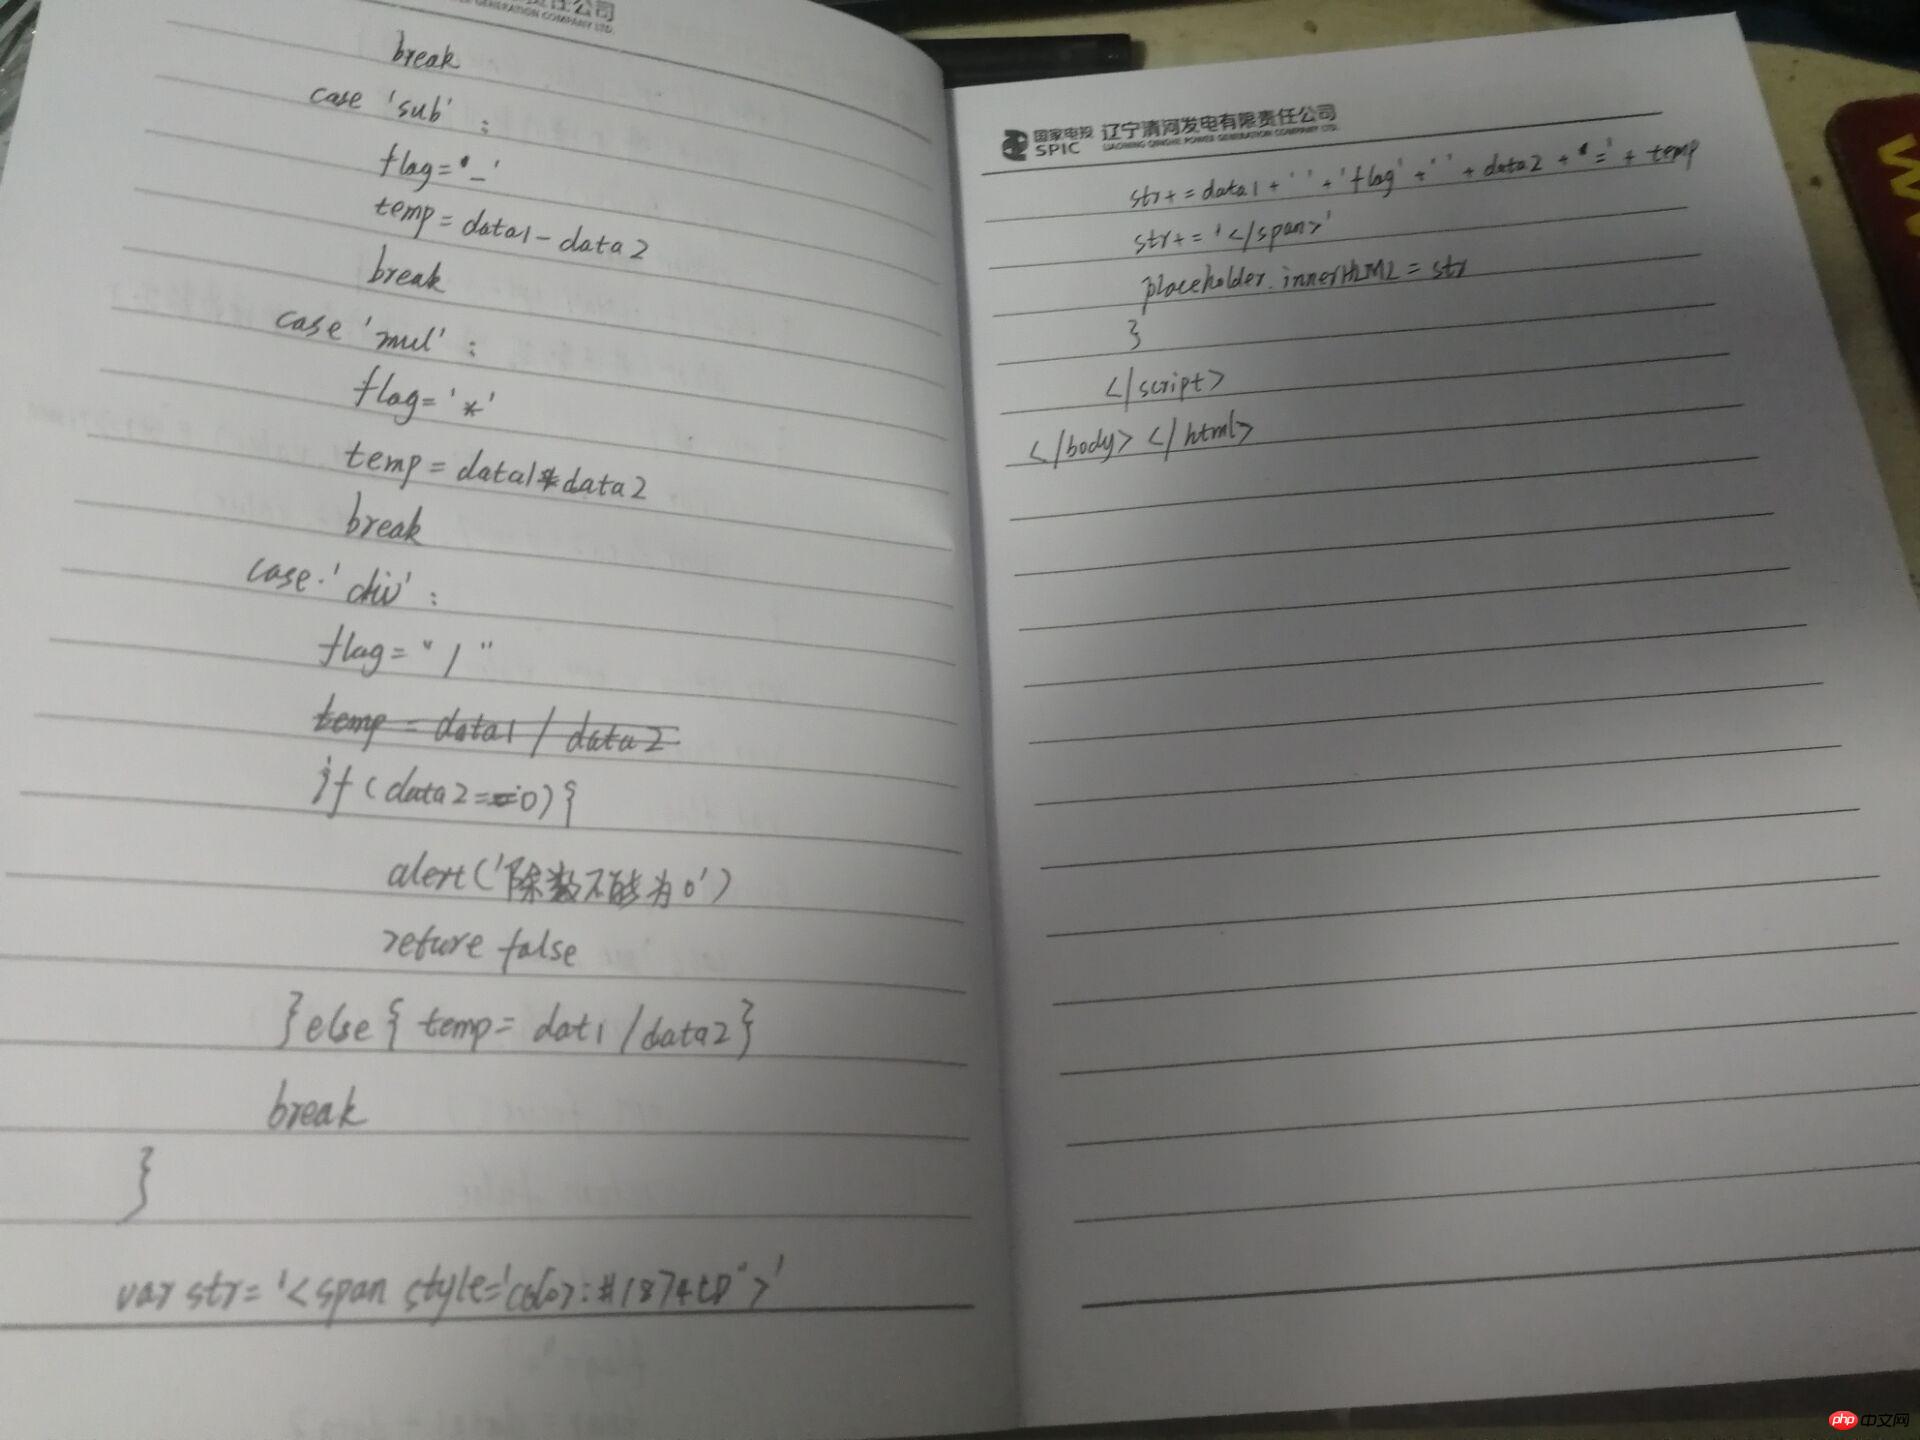 责任公司
GENERATION COMPANY LTD.
break
case 'sub' :
flag='-'
temp=data1-data2
break
case 'mul' :
flag='*'
temp=data1*data2
break
case.'div' :
flag="/"
temp=data1/data2
if(data2==0){
alert('除数不能为0')
reture false
}else{ temp= dat1/data2}
break
}
var str='<span style='color:#1874CD">'
国家电投 辽宁清河发电有限责任公司
SPIC LIAONING QINGHE POWER GENERATION COMPANY LTD.
str+=data1+' '+'flag'+' '+data2+'='+temp
str+='</span>'
placeholder.innerHTML=str
}
</script>
</body></html>
php中文网